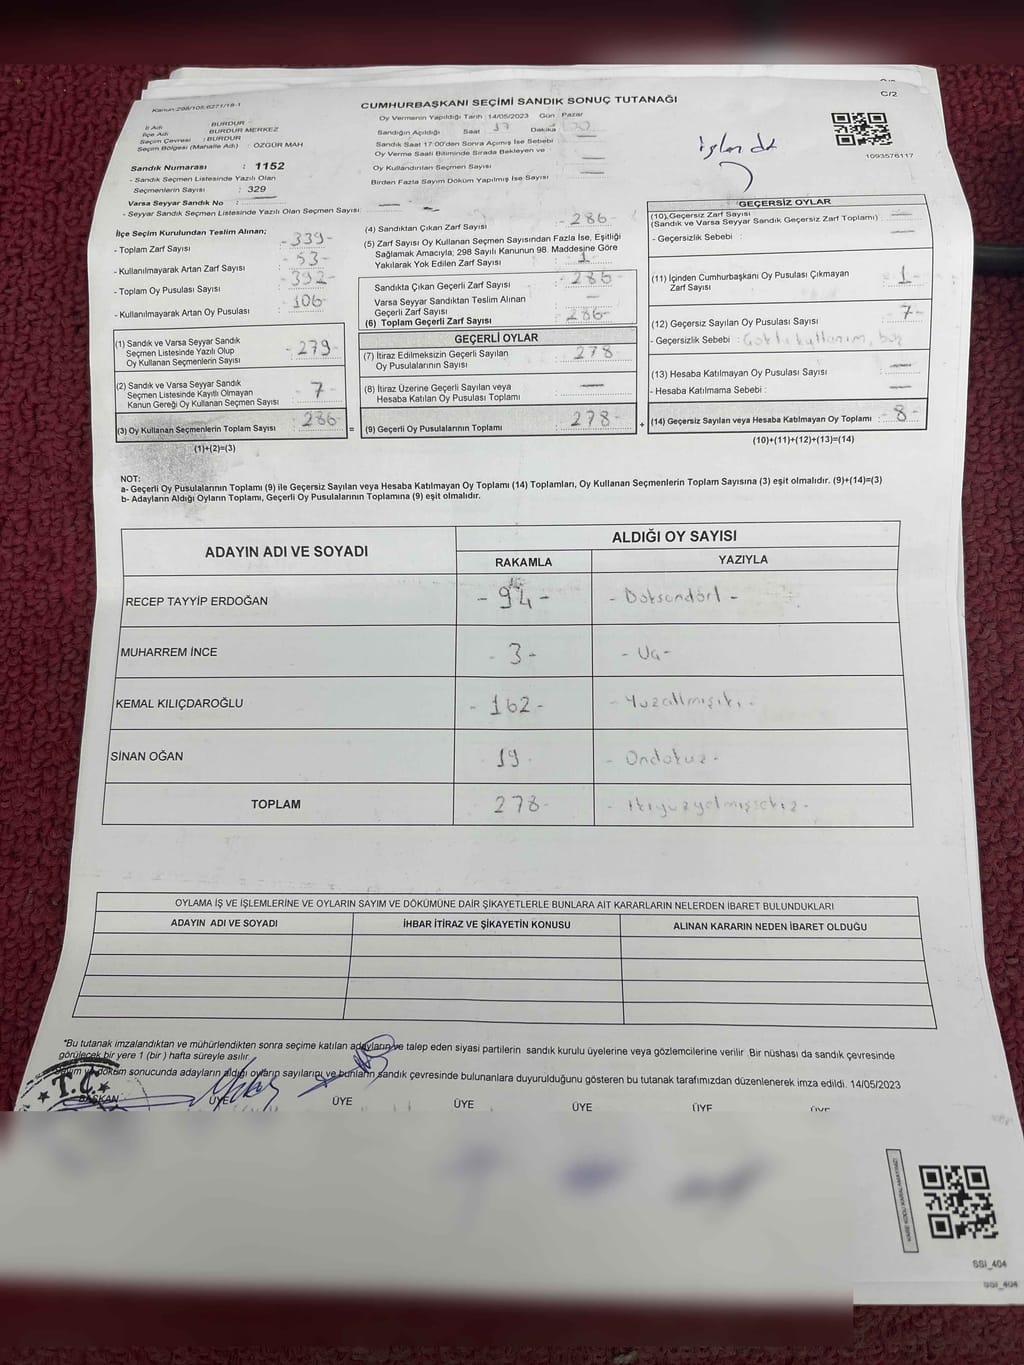 C/2
Kanun:298/105,6271/18-1
CUMHURBAŞKANI SEÇİMİ SANDIK SONUÇ TUTANAĞI
İl Adı : BURDUR
İlçe Adı : BURDUR MERKEZ
Seçim Çevresi : BURDUR
Seçim Bölgesi (Mahalle Adı) : ÖZGÜR MAH
Sandık Numarası : 1152
- Sandık Seçmen Listesinde Yazılı Olan
Seçmenlerin Sayısı : 329
Varsa Seyyar Sandık No :
- Seyyar Sandık Seçmen Listesinde Yazılı Olan Seçmen Sayısı:
Oy Vermenin Yapıldığı Tarih : 14/05/2023 Gün : Pazar
Sandığın Açıldığı Saat 17 Dakika
Sandık Saat 17:00'den Sonra Açılmış İse Sebebi
Oy Verme Saati Bitiminde Sırada Bekleyen ve
Oy Kullandırılan Seçmen Sayısı
Birden Fazla Sayım Döküm Yapılmış İse Sayısı
işlendi
1093576117
İlçe Seçim Kurulundan Teslim Alınan;
- Toplam Zarf Sayısı : -339-
- Kullanılmayarak Artan Zarf Sayısı : -53-
- Toplam Oy Pusulası Sayısı : -392-
- Kullanılmayarak Artan Oy Pusulası : -106-
(1) Sandık ve Varsa Seyyar Sandık
Seçmen Listesinde Yazılı Olup
Oy Kullanan Seçmenlerin Sayısı : -279-
(2) Sandık ve Varsa Seyyar Sandık
Seçmen Listesinde Kayıtlı Olmayan
Kanun Gereği Oy Kullanan Seçmen Sayısı : -7-
(3) Oy Kullanan Seçmenlerin Toplam Sayısı : 286-
(1)+(2)=(3)
(4) Sandıktan Çıkan Zarf Sayısı : -286-
(5) Zarf Sayısı Oy Kullanan Seçmen Sayısından Fazla İse, Eşitliği
Sağlamak Amacıyla; 298 Sayılı Kanunun 98. Maddesine Göre
Yakılarak Yok Edilen Zarf Sayısı
Sandıkta Çıkan Geçerli Zarf Sayısı : -286
Varsa Seyyar Sandıktan Teslim Alınan
Geçerli Zarf Sayısı : —
(6) Toplam Geçerli Zarf Sayısı : -286-
GEÇERLİ OYLAR
(7) İtiraz Edilmeksizin Geçerli Sayılan
Oy Pusulalarının Sayısı : 278
(8) İtiraz Üzerine Geçerli Sayılan veya
Hesaba Katılan Oy Pusulası Toplamı : —
= (9) Geçerli Oy Pusulalarının Toplamı : 278-
GEÇERSİZ OYLAR
(10) Geçersiz Zarf Sayısı
(Sandık ve Varsa Seyyar Sandık Geçersiz Zarf Toplamı) : —
- Geçersizlik Sebebi : —
(11) İçinden Cumhurbaşkanı Oy Pusulası Çıkmayan
Zarf Sayısı : 1-
(12) Geçersiz Sayılan Oy Pusulası Sayısı : 7-
- Geçersizlik Sebebi : kullanım, boş
(13) Hesaba Katılmayan Oy Pusulası Sayısı : —
- Hesaba Katılmama Sebebi : —
+ (14) Geçersiz Sayılan veya Hesaba Katılmayan Oy Toplamı : -8-
(10)+(11)+(12)+(13)=(14)
NOT:
a- Geçerli Oy Pusulalarının Toplamı (9) ile Geçersiz Sayılan veya Hesaba Katılmayan Oy Toplamı (14) Toplamları, Oy Kullanan Seçmenlerin Toplam Sayısına (3) eşit olmalıdır. (9)+(14)=(3)
b- Adayların Aldığı Oyların Toplamı, Geçerli Oy Pusulalarının Toplamına (9) eşit olmalıdır.
ADAYIN ADI VE SOYADI
ALDIĞI OY SAYISI
RAKAMLA YAZIYLA
RECEP TAYYİP ERDOĞAN -94- -Doksandört-
MUHARREM İNCE -3- -Üç-
KEMAL KILIÇDAROĞLU -162- -Yüzaltmışiki-
SİNAN OĞAN 19- -Ondokuz-
TOPLAM 278- -İkiyüzyetmişsekiz-
OYLAMA İŞ VE İŞLEMLERİNE VE OYLARIN SAYIM VE DÖKÜMÜNE DAİR ŞİKAYETLERLE BUNLARA AİT KARARLARIN NELERDEN İBARET BULUNDUKLARI
ADAYIN ADI VE SOYADI İHBAR İTİRAZ VE ŞİKAYETİN KONUSU ALINAN KARARIN NEDEN İBARET OLDUĞU
*Bu tutanak imzalandıktan ve mühürlendikten sonra seçime katılan adayların ve talep eden siyasi partilerin sandık kurulu üyelerine veya gözlemcilerine verilir .Bir nüshası da sandık çevresinde
görülecek bir yere 1 (bir ) hafta süreyle asılır.
Sayım ve döküm sonucunda adayların aldığı oyların sayılarını ve bunların sandık çevresinde bulunanlara duyurulduğunu gösteren bu tutanak tarafımızdan düzenlenerek imza edildi. 14/05/2023
T.C.
BAŞKAN ÜYE ÜYE ÜYE ÜYE ÜYE ÜYE
SSI_404
SSI_404